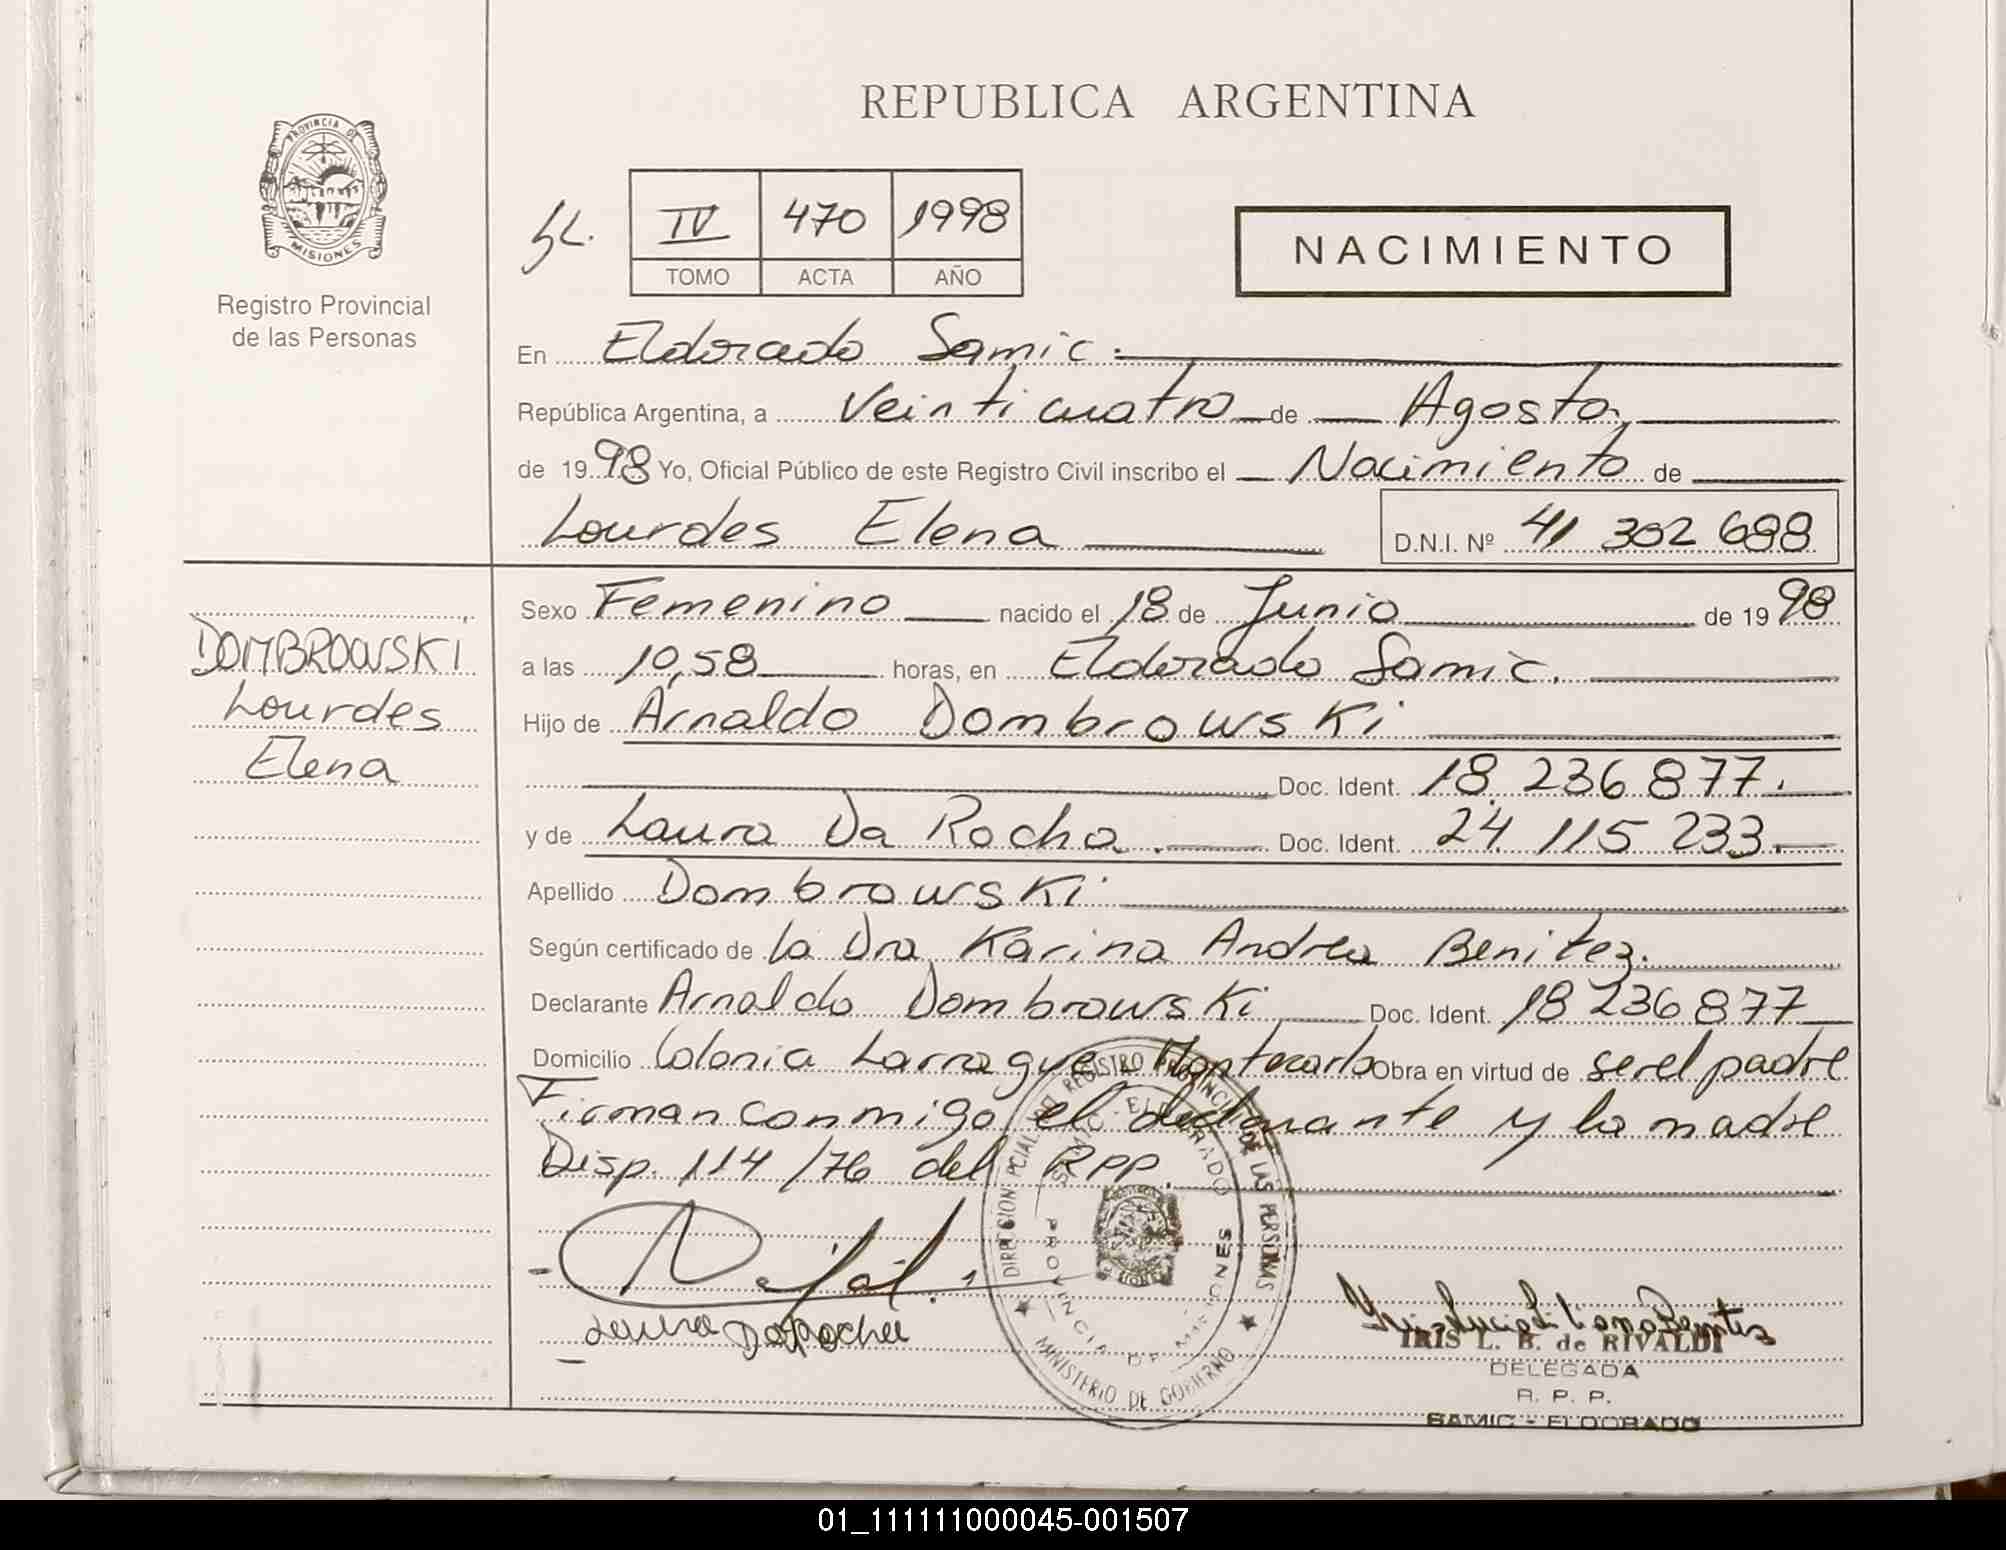 REPUBLICA ARGENTINA
PROVINCIA DE
MISIONES
Registro Provincial
de las Personas
IV 470 1998
TOMO ACTA AÑO
NACIMIENTO
En Eldorado Samic.
República Argentina, a Veinticuatro de Agosto
de 1998 Yo, Oficial Público de este Registro Civil inscribo el Nacimiento de
Lourdes Elena D.N.I. Nº 41 302 688
DOMBROWSKI
Lourdes
Elena
Sexo Femenino nacido el 18 de Junio de 1998
a las 10,58 horas, en Eldorado Samic.
Hijo de Arnaldo Dombrowski
Doc. Ident. 18.236 877.
y de Laura Da Rocha. Doc. Ident. 24.115 233.
Apellido Dombrowski
Según certificado de la Dra Karina Andrea Benitez.
Declarante Arnaldo Dombrowski Doc. Ident. 18 236 877
Domicilio Colonia Larrague Montecarlo Obra en virtud de ser el padre
Firman conmigo el declarante y la madre
Disp. 114/76 del RPP.
DIRECCION PCIAL DEL REGISTRO PROVINCIAL DE LAS PERSONAS
SAMIC - ELDORADO
PROVINCIA DE MISIONES
MINISTERIO DE GOBIERNO
Laura Da Rocha
IRIS L. B. de RIVALDI
DELEGADA
R. P. P.
SAMIC - ELDORADO
01_111111000045-001507